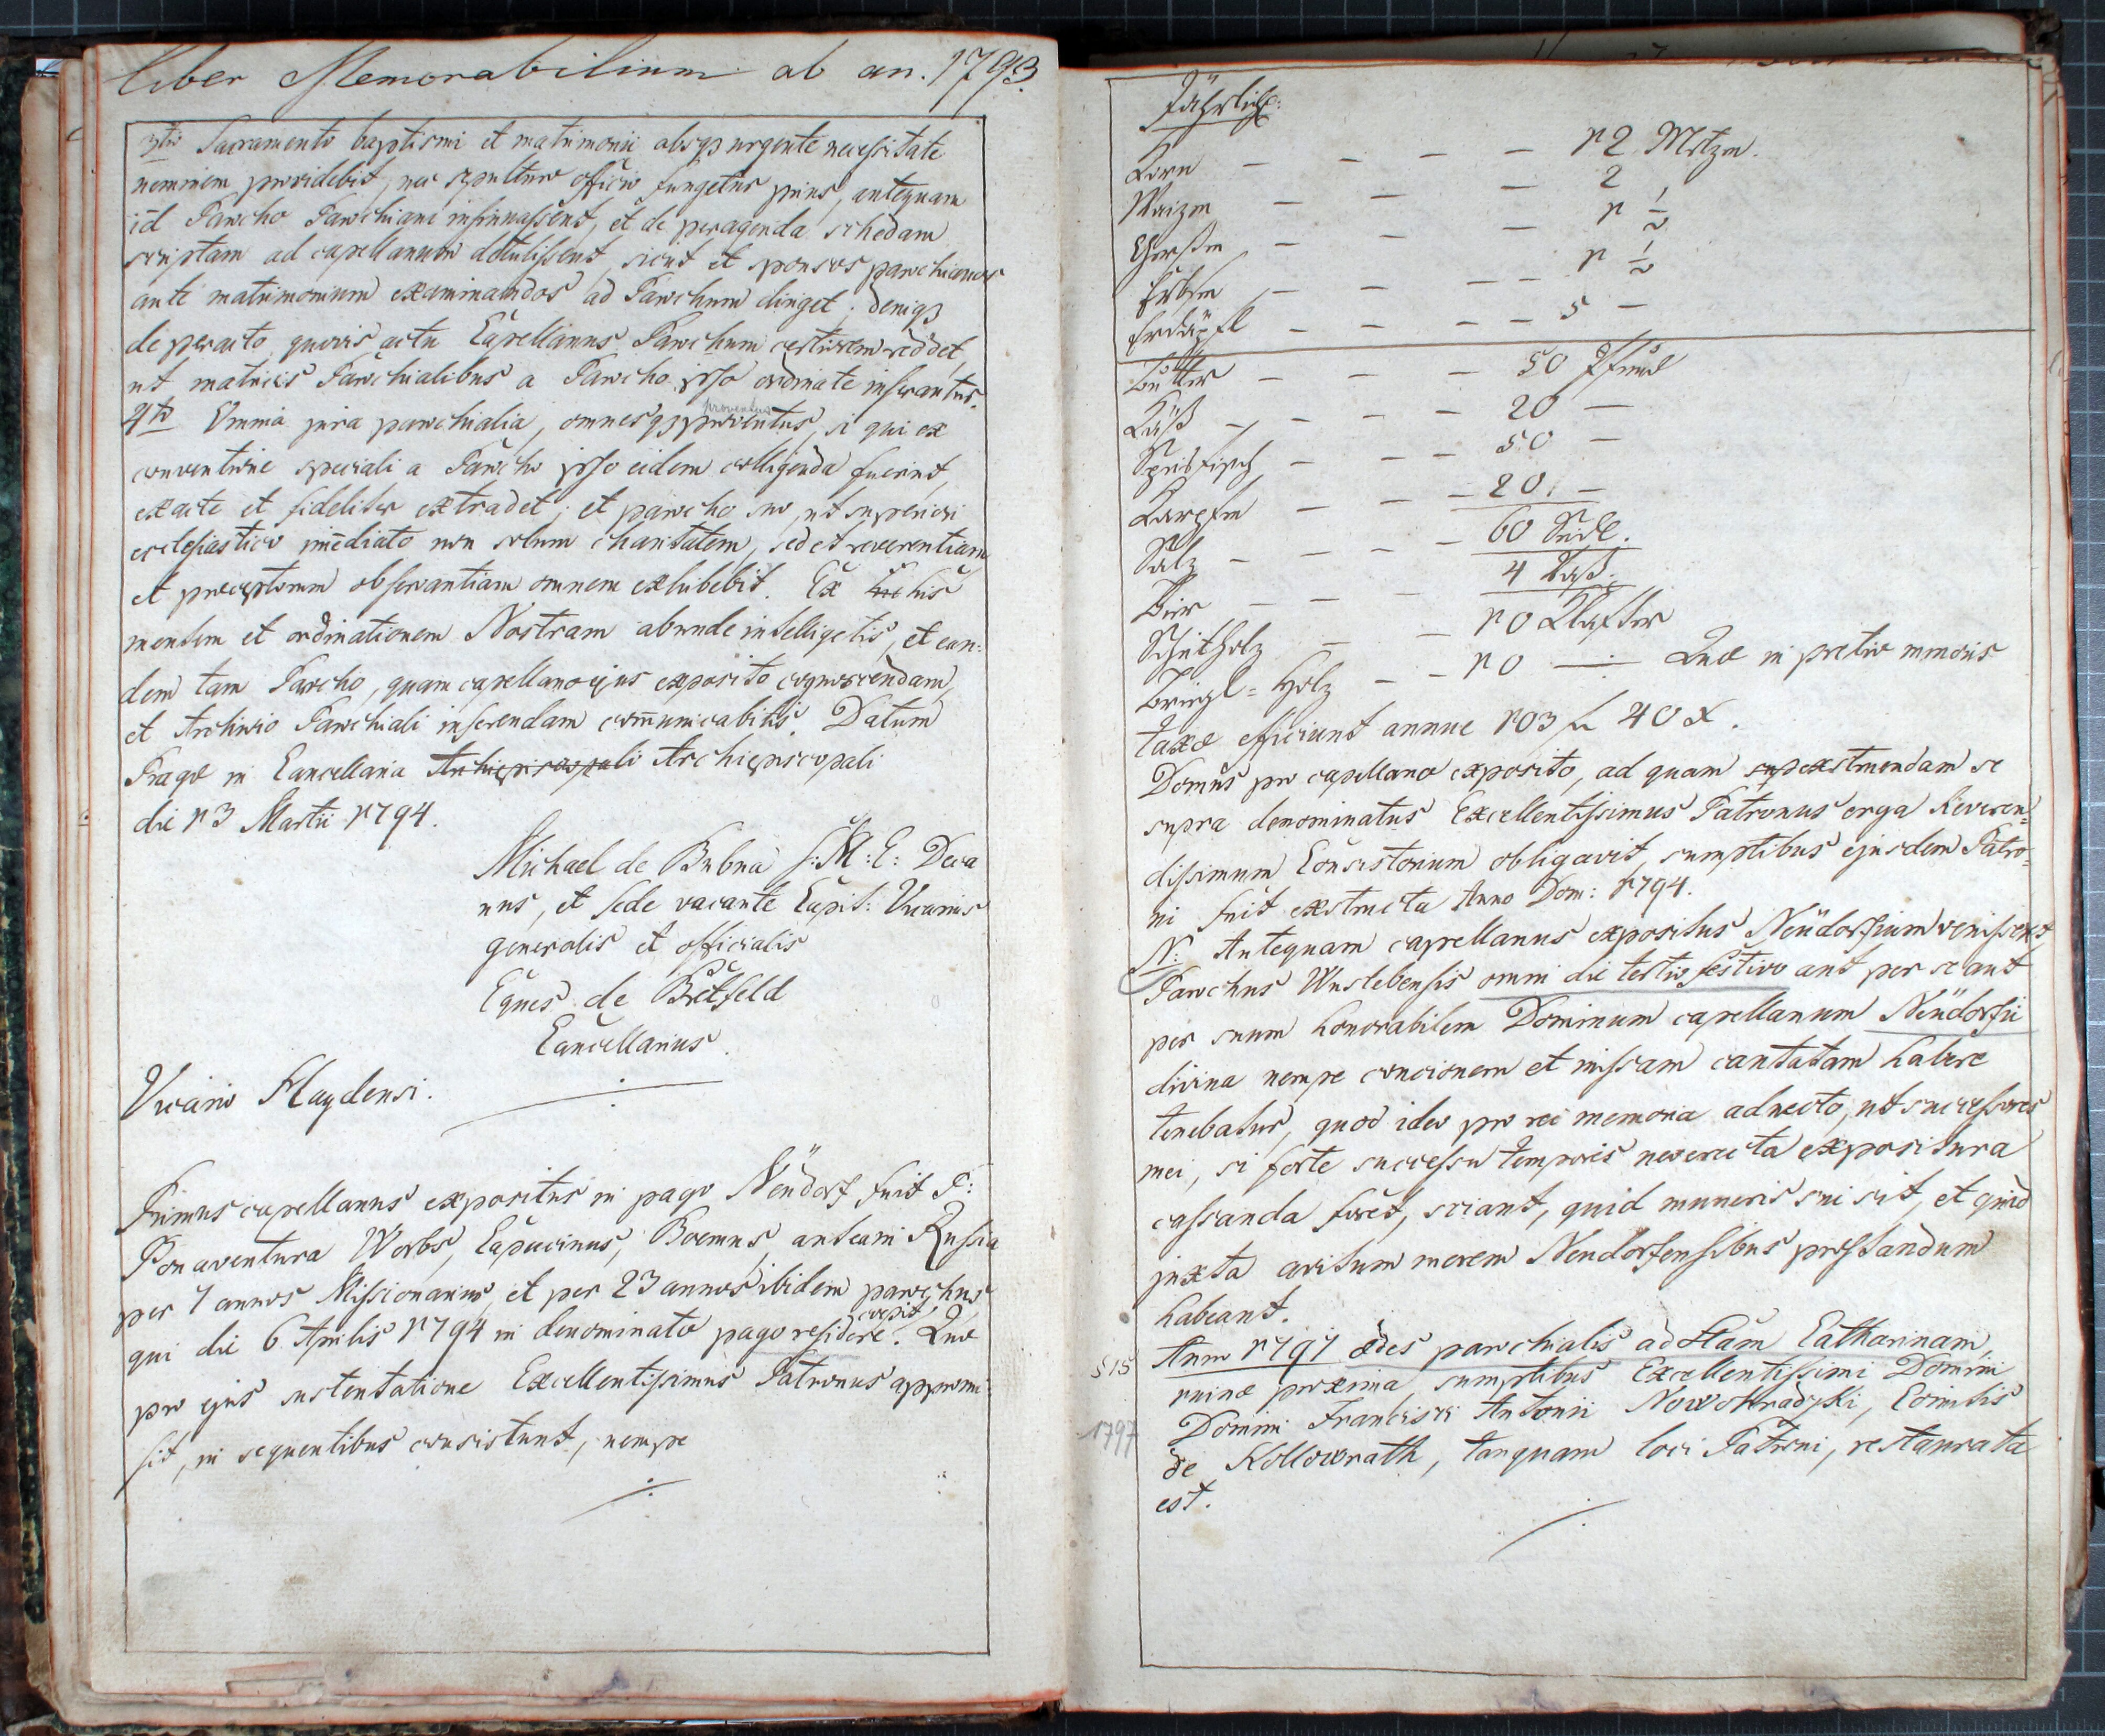 Liber Memorabilium ab an. 1793.
3tio Sacramento baptismi et matrimonii absqȝ urgente necessitate
neminem providebit, nec sepulturæ officio fungetur prius, antequam
id Parocho Parochiani insinuassent, et de peragenda schedam
scriptam ad capellanum attulissent, sicut et sponsos parochianos
ante matrimonium examinandos ad Parochum diriget; deniqȝ
de peracto quovis actu Capellanus Parochum certiorem reddet,
ut matricis Parochialibus a Parocho ipso ordinate inserantur.
4to Omnia jura parochialia, omnesqȝ proventus, si qui ex
proventus
conventione speciali a Parocho ipso eidem colligenda fuerint,
exacte et fideliter extradet; et parocho suo, ut superiori
ecclesiastico imediato non solum charitatem, sed et reverentiam
et præceptorum observantiam omnem exhibebit. Ex his
mentem et ordinationem Nostram abunde intelligetis, et ean:
dem tam Parocho, quam capellano ejus exposito cognoscendam,
et Archivio Parochiali inserendam comunicabitis. Datum
Pragæ in Cancellaria Archiepiscopali Archiepiscopali
die 13 Martii 1794.
Michael de Bubna S: M: E: Deca
nus, et Sede vacante Capit: Vicarius
generalis et officialis
Eques de Bretfeld
Cancellarius.
Vicario Haydensi.
Primus capellanus expositus in pago Neüdorf fuit P:
Bonaventura Worbs, Capucinus, Boemus, anteam Russia
per 7 annos Missionarius, et per 23 annos ibidem parochus
qui die 6 Aprilis 1794 in denominato pago residere cœpit. Quæ
pro ejus sustentatione Excellentissimus Patronus appromi
sit, in sequentibus consistunt, nempe
Jährlich:
Korn — — — — 12 Metzen.
Waizen — — — 2
Gersten — — — 1 1/2
Erbsen — — — — 1 1/2
Erdäpfl — — — — 5 —
Butter — — — 50 Pfund
Käß — — — — 20 —
Speisfisch — — — 50 —
Karpfen — — — 20. —
Salz — — — — 60 Seidl.
Bier — — — 4 Faß.
Scheitholz — — 10 Klafter
Briegl=Holz — — 10 — Quæ in pretio minoris
taxæ efficiunt annue 103 fl 40 x.
Domus pro capellano exposito, ad quam exstruendam se
supra denominatus Excellentissimus Patronus erga Reveren=
dissimum Consistorium obligavit, sumptibus ejusdem Patro=
ni fuit exstructa Anno Dom: 1794.
N: Antequam capellanus expositus Neüdorfium venisset
Parochus Wuslebensis omni die tertio festivo aut per se aut
per suum honorabilem Dominum capellanum Neüdorfii
divina nempe concionem et missam cantatam habere
tenebatur, quod ideo pro rei memoria adnecto, ut successores
mei, si forte successu temporis noverecta expositura
cassanda foret, sciant, quid muneris sui sit, et quid
juxta avitum morem Neudorfensibus præstandum
habeant.
§15 Anno 1797 ædes parochialis ad Stam Catharinam,
ruinæ proxima, sumptibus Excellentissimi Domini
1797 Domini Francisci Antonii Nowohradski, Comitis
de Kollowrath, tanquam loci Patroni, restaurata
est.